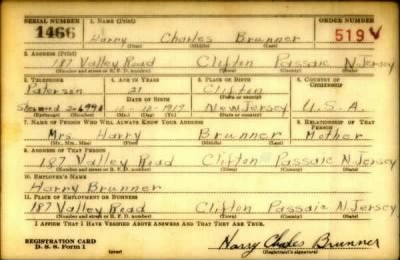 SERIAL NUMBER 1. NAME (Print) ORDER NUMBER
1466 Harry Charles Brunner 519
(First) (Middle) (Last)
2. ADDRESS (Print)
187 Valley Road Clifton Passaic N. Jersey
(Number and street or R. F. D. number) (Town) (County) (State)
3. TELEPHONE 4. AGE IN YEARS 5. PLACE OF BIRTH 6. COUNTRY OF CITIZENSHIP
Paterson 21 Clifton
DATE OF BIRTH
10-1919 New Jersey U.S.A.
(Exchange) (Number) (Mo.) (Day) (Yr.) (State or country)
7. NAME OF PERSON WHO WILL ALWAYS KNOW YOUR ADDRESS 8. RELATIONSHIP OF THAT PERSON
Mrs. Harry Brunner Mother
(Mr., Mrs., Miss) (First) (Middle) (Last)
9. ADDRESS OF THAT PERSON
187 Valley Road Clifton Passaic N. Jersey
(Number and street or R. F. D. number) (Town) (County) (State)
10. EMPLOYER'S NAME
Harry Brunner
11. PLACE OF EMPLOYMENT OR BUSINESS
187 Valley Road Clifton Passaic N. Jersey
(Number and street or R. F. D. number) (Town) (County) (State)
I AFFIRM THAT I HAVE VERIFIED ABOVE ANSWERS AND THAT THEY ARE TRUE.
REGISTRATION CARD
D. S. S. Form 1 (over) Harry Charles Brunner
(Registrant's signature)